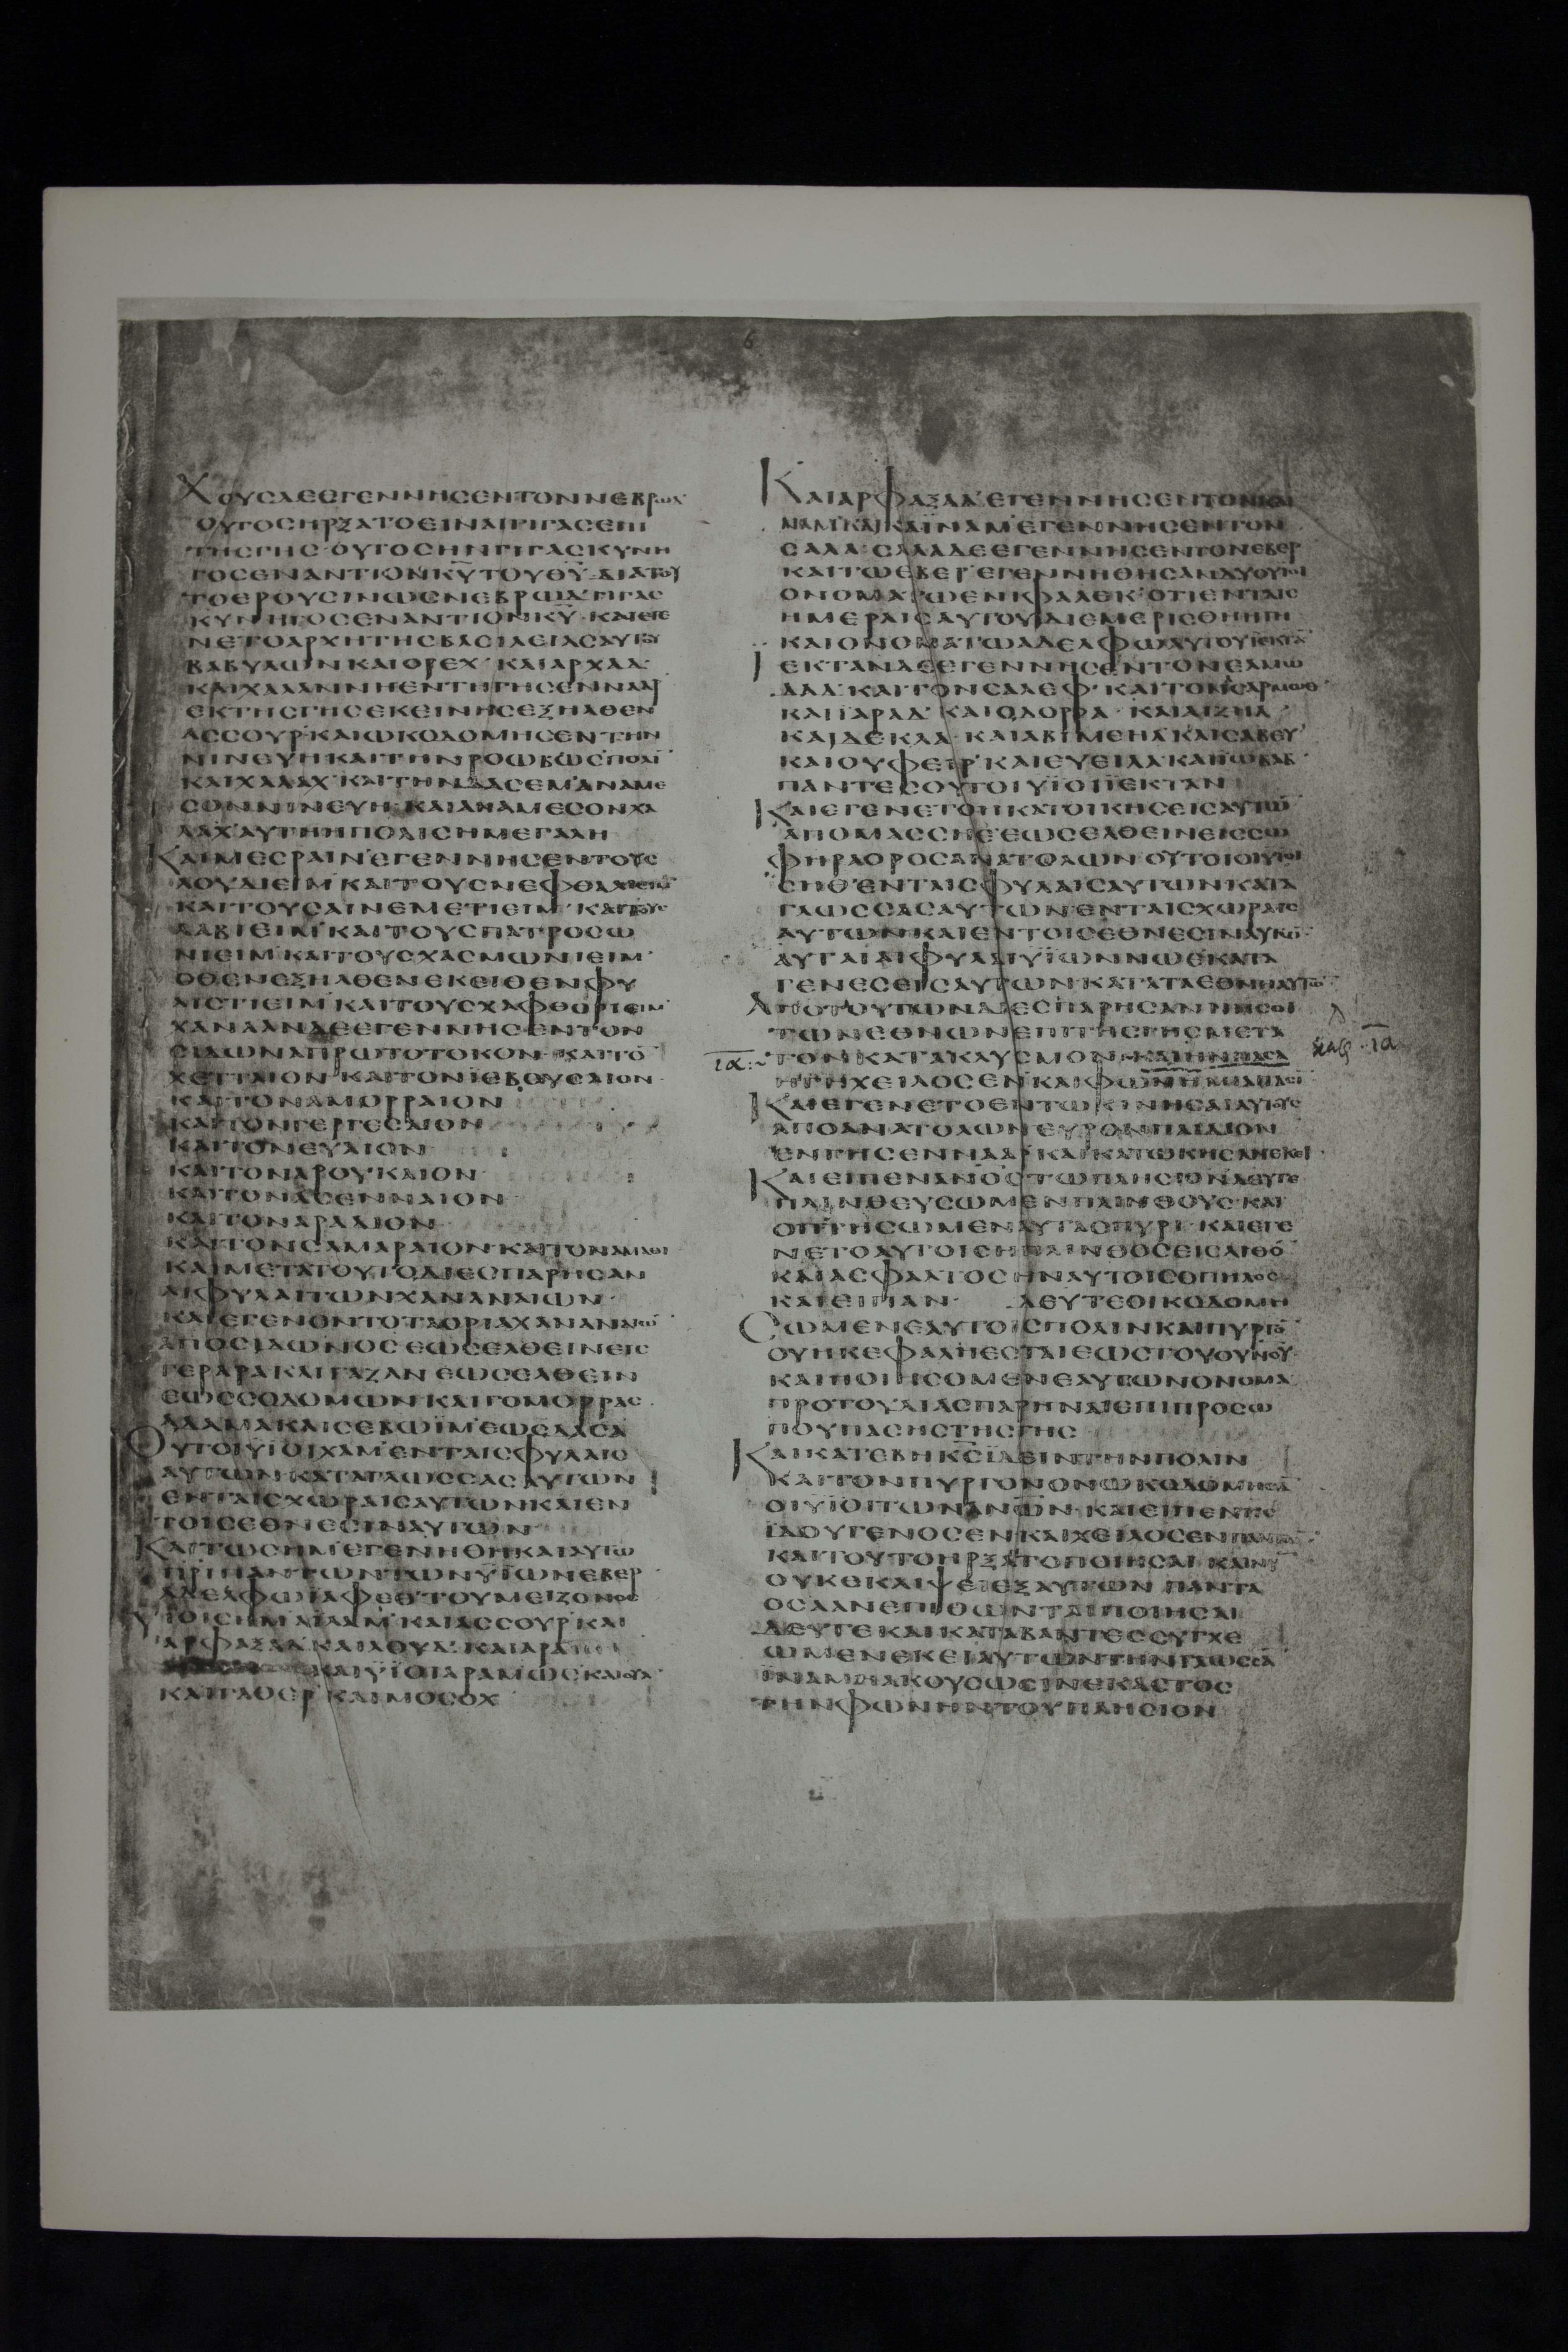 6
ΧΟΥΣΔΕΕΓΕΝΝΗΣΕΝΤΟΝΝΕΒΡΩΔ·
ΟΥΤΟΣΗΡΞΑΤΟΕΙΝΑΙΓΙΓΑΣΕΠΙ
ΤΗΣΓΗΣ·ΟΥΤΟΣΗΝΓΙΓΑΣΚΥΝΗ
ΓΟΣΕΝΑΝΤΙΟΝΚ̅Υ̅ΤΟΥΘ̅Υ̅·ΔΙΑΤΟΥ
ΤΟΕΡΟΥΣΙΝΩΣΝΕΒΡΩΔ·ΓΙΓΑΣ
ΚΥΝΗΓΟΣΕΝΑΝΤΙΟΝΚ̅Υ̅·ΚΑΙΕΓΕ
ΝΕΤΟΑΡΧΗΤΗΣΒΑΣΙΛΕΙΑΣΑΥΤΟΥ
ΒΑΒΥΛΩΝΚΑΙΟΡΕΧ·ΚΑΙΑΡΧΑΔ·
ΚΑΙΧΑΛΑΝΝΗΕΝΤΗΓΗΣΕΝΝΑΑΡ
ΕΚΤΗΣΓΗΣΕΚΕΙΝΗΣΕΞΗΛΘΕΝ
ΑΣΣΟΥΡ·ΚΑΙΩΚΟΔΟΜΗΣΕΝΤΗΝ
ΝΙΝΕΥΗΚΑΙΤΗΝΡΟΩΒΩΣΠΟΛΙ̅
ΚΑΙΧΑΛΑΧ·ΚΑΙΤΗΝΔΑΣΕΜ·ΑΝΑΜΕ
ΣΟΝΝΙΝΕΥΗ·ΚΑΙΑΝΑΜΕΣΟΝΧΑ
ΛΑΧ·ΑΥΤΗΗΠΟΛΙΣΗΜΕΓΑΛΗ
ΚΑΙΜΕΣΡΑΙΝ·ΕΓΕΝΝΗΣΕΝΤΟΥΣ
ΛΟΥΔΙΕΙΜ·ΚΑΙΤΟΥΣΝΕΦΘΑΛΙΕΙΜ·
ΚΑΙΤΟΥΣΑΙΝΕΜΕΤΙΕΙΜ·ΚΑΙΤΟΥΣ
ΛΑΒΙΕΙΜ·ΚΑΙΤΟΥΣΠΑΤΡΟΣΩ
ΝΙΕΙΜ·ΚΑΙΤΟΥΣΧΑΣΜΩΝΙΕΙΜ·
ΟΘΕΝΕΞΗΛΘΕΝΕΚΕΙΘΕΝΦΥ
ΛΙΣΤΙΕΙΜ·ΚΑΙΤΟΥΣΧΑΦΘΟΡΙΕΙΜ·
ΧΑΝΑΑΝΔΕΕΓΕΝΝΗΣΕΝΤΟΝ
ΣΙΔΩΝΑΠΡΩΤΟΤΟΚΟΝ·ΚΑΙΤΟ̅
ΧΕΤΤΑΙΟΝ·ΚΑΙΤΟΝΙΕΒΟΥΣΑΙΟΝ·
ΚΑΙΤΟΝΑΜΟΡΡΑΙΟΝ
ΚΑΙΤΟΝΓΕΡΓΕΣΑΙΟΝ
ΚΑΙΤΟΝΕΥΑΙΟΝ
ΚΑΙΤΟΝΑΡΟΥΚΑΙΟΝ
ΚΑΙΤΟΝΑΣΕΝΝΑΙΟΝ
ΚΑΙΤΟΝΑΡΑΔΙΟΝ
ΚΑΙΤΟΝΣΑΜΑΡΑΙΟΝ·ΚΑΙΤΟΝΑΜΑΘΙ
ΚΑΙΜΕΤΑΤΟΥΤΟΔΙΕΣΠΑΡΗΣΑΝ
ΑΙΦΥΛΑΙΤΩΝΧΑΝΑΝΑΙΩΝ·
ΚΑΙΕΓΕΝΟΝΤΟΤΑΟΡΙΑΧΑΝΑΝΑΙΩ̅
ΑΠΟΣΙΔΩΝΟΣΕΩΣΕΛΘΕΙΝΕΙΣ
ΓΕΡΑΡΑΚΑΙΓΑΖΑΝΕΩΣΕΛΘΕΙΝ
ΕΩΣΣΟΔΟΜΩΝΚΑΙΓΟΜΟΡΡΑΣ·
ΑΔΑΜΑΚΑΙΣΕΒΩΙΜ·ΕΩΣΛΑΣΑ
ΟΥΤΟΙΫΙΟΙΧΑΜ·ΕΝΤΑΙΣΦΥΛΑΙΣ
ΑΥΤΩΝ·ΚΑΤΑΓΛΩΣΣΑΣΑΥΤΩΝ
ΕΝΤΑΙΣΧΩΡΑΙΣΑΥΤΩΝΚΑΙΕΝ
ΤΟΙΣΕΘΝΕΣΙΝΑΥΤΩΝ
ΚΑΙΤΩΣΗΜ·ΕΓΕΝΗΘΗΚΑΙΑΥΤΩ
ΠΡΙΠΑΝΤΩΝΤΩΝΫΙΩΝΕΒΕΡ
ΑΔΕΛΦΩΙΑΦΕΘ·ΤΟΥΜΕΙΖΟΝΟΣ
ΫΙΟΙΣΗΜ·ΑΙΛΑΜ·ΚΑΙΑΣΣΟΥΡ·ΚΑΙ
ΑΡΦΑΞΑΔ·ΚΑΙΛΟΥΔ·ΚΑΙΑΡΑΜ
ΚΑΙΫΙΟΙΑΡΑΜ·ΩΣ·ΚΑΙΟΥΛ·
ΚΑΙΓΑΘΕΡ·ΚΑΙΜΟΣΟΧ
ΚΑΙΑΡΦΑΞΑΔ·ΕΓΕΝΝΗΣΕΝΤΟΝΚΑΙ
ΝΑΜ·ΚΑΙΚΑΪΝΑΜ·ΕΓΕΝΝΗΣΕΝΤΟΝ
ΣΑΛΑ·ΣΑΛΑΔΕΕΓΕΝΝΗΣΕΝΤΟΝΕΒΕΡ
ΚΑΙΤΩΕΒΕΡ·ΕΓΕΝΝΗΘΗΣΑΝΔΥΟΥΪΟΙ
ΟΝΟΜΑΤΩΕΝΙΦΑΛΕΚ·ΟΤΙΕΝΤΑΙΣ
ΗΜΕΡΑΙΣΑΥΤΟΥΔΙΕΜΕΡΙΣΘΗΗΓΗ
ΚΑΙΟΝΟΜΑΤΩΑΔΕΛΦΩΑΥΤΟΥΪΕΚΤΑ̅
ΙΕΚΤΑΝΔΕΕΓΕΝΝΗΣΕΝΤΟΝΕΛΜΩ
ΔΑΔ·ΚΑΙΤΟΝΣΑΛΕΦ·ΚΑΙΤΟΝΑΣΑΡΜΩΘ·
ΚΑΙΪΑΡΑΔ·ΚΑΙΟΔΟΡΡΑ·ΚΑΙΑΙΖΗΛ·
ΚΑΙΔΕΚΛΑ·ΚΑΙΑΒΙΜΕΗΛ·ΚΑΙΣΑΒΕΥ·
ΚΑΙΟΥΦΕΙΡ·ΚΑΙΕΥΕΙΛΑ·ΚΑΙΪΩΒΑΒ·
ΠΑΝΤΕΣΟΥΤΟΙΫΙΟΙΪΕΚΤΑΝ
ΚΑΙΕΓΕΝΕΤΟΗΚΑΤΟΙΚΗΣΕΙΣΑΥΤΩ̅
ΑΠΟΜΑΣΣΗΕ·ΕΩΣΕΛΘΕΙΝΕΙΣΣΩ
ΦΗΡΑΟΡΟΣΑΝΑΤΟΛΩΝ·ΟΥΤΟΙΟΙΥΙΟΙ
ΣΗΘ·ΕΝΤΑΙΣΦΥΛΑΙΣΑΥΤΩΝΚΑΤΑ
ΓΛΩΣΣΑΣΑΥΤΩΝΕΝΤΑΙΣΧΩΡΑΙΣ
ΑΥΤΩΝ·ΚΑΙΕΝΤΟΙΣΕΘΝΕΣΙΝΑΥΤΩ̅·
ΑΥΤΑΙΑΙΦΥΛΑΙΫΙΩΝΝΩΕΚΑΤΑ
ΓΕΝΕΣΕΙΣΑΥΤΩΝΚΑΤΑΤΑΕΘΝΗΑΥΤΩ̅
ΑΠΟΤΟΥΤΩΝΔΙΕΣΠΑΡΗΣΑΝΝΗΣΟΙ
ΤΩΝΕΘΝΩΝΕΠΙΤΗΣΓΗΣΜΕΤΑ
ι̅α̅ ΤΟΝΚΑΤΑΚΛΥΣΜΟΝ·ΚΑΙΗΝΠΑΣΑ κεφ ι̅α̅
ΗΓΗΧΕΙΛΟΣΕΝ·ΚΑΙΦΩΝΗ
ΚΑΙΕΓΕΝΕΤΟΕΝΤΩΚΙΝΗΣΑΙΑΥΤΟΥΣ
ΑΠΟΑΝΑΤΟΛΩΝΕΥΡΟΝΠΑΙΔΙΟΝ
ΕΝΓΗΣΕΝΝΑΑΡ·ΚΑΙΚΑΤΩΚΗΣΑΝΕΚΕΙ
ΚΑΙΕΙΠΕΝΑΝΟΣΤΩΠΛΗΣΙΟΝΔΕΥΤΕ
ΠΛΙΝΘΕΥΣΩΜΕΝΠΛΙΝΘΟΥΣ·ΚΑΙ
ΟΠΤΗΣΩΜΕΝΑΥΤΑΣΠΥΡΙ·ΚΑΙΕΓΕ
ΝΕΤΟΑΥΤΟΙΣΗΠΛΙΝΘΟΣΕΙΣΛΙΘΟ̅
ΚΑΙΑΣΦΑΛΤΟΣΗΝΑΥΤΟΙΣΟΠΗΛΟΣ
ΚΑΙΕΙΠΑΝ· ΔΕΥΤΕΟΙΚΟΔΟΜΗ
ΣΩΜΕΝΕΑΥΤΟΙΣΠΟΛΙΝΚΑΙΠΥΡΓΟ̅
ΟΥΗΚΕΦΑΛΗΕΣΤΑΙΕΩΣΤΟΥΟΥΝΟΥ·
ΚΑΙΠΟΙΗΣΟΜΕΝΕΑΥΤΩΝΟΝΟΜΑ
ΠΡΟΤΟΥΔΙΑΣΠΑΡΗΝΑΙΕΠΙΠΡΟΣΩ
ΠΟΥΠΑΣΗΣΤΗΣΓΗΣ
ΚΑΙΚΑΤΕΒΗΚ̅Σ̅ΪΔΕΙΝΤΗΝΠΟΛΙΝ
ΚΑΙΤΟΝΠΥΡΓΟΝΟΝΩΚΟΔΟΜΗΣΑ̅
ΟΙΫΙΟΙΤΩΝΑΝΩΝ·ΚΑΙΕΙΠΕΝΚ̅Σ̅
ΪΔΟΥΓΕΝΟΣΕΝΚΑΙΧΕΙΛΟΣΕΝΠΑΝΤΩ̅
ΚΑΙΤΟΥΤΟΗΡΞΑΤΟΠΟΙΗΣΑΙ·ΚΑΙΝΥ̅
ΟΥΚΕΚΛΙΨΕΙΕΞΑΥΤΩΝΠΑΝΤΑ
ΟΣΑΑΝΕΠΙΘΩΝΤΑΙΠΟΙΗΣΑΙ
ΔΕΥΤΕΚΑΙΚΑΤΑΒΑΝΤΕΣΣΥΓΧΕ
ΩΜΕΝΕΚΕΙΑΥΤΩΝΤΗΝΓΛΩΣΣΑ̅
ΪΝΑΜΗΑΚΟΥΣΩΣΙΝΕΚΑΣΤΟΣ
ΤΗΝΦΩΝΗΝΤΟΥΠΛΗΣΙΟΝ